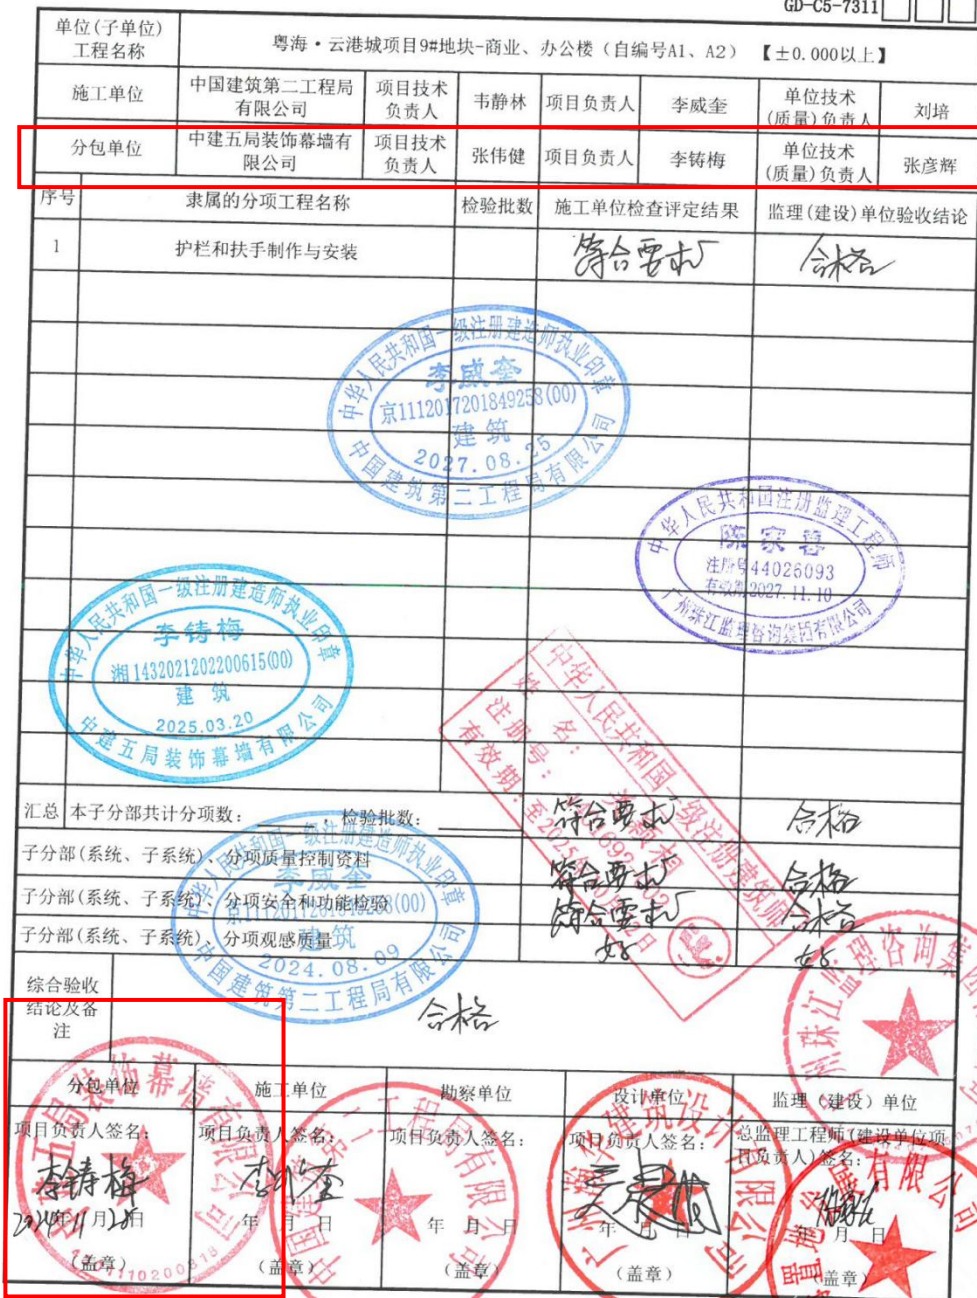 GD-C5-7311
单位(子单位)
工程名称
粤海·云港城项目9#地块-商业、办公楼（自编号A1、A2）【±0.000以上】
施工单位
中国建筑第二工程局
有限公司
项目技术
负责人
韦静林
项目负责人
李威奎
单位技术
(质量)负责人
刘培
分包单位
中建五局装饰幕墙有
限公司
项目技术
负责人
张伟健
项目负责人
李铸梅
单位技术
(质量)负责人
张彦辉
序号
隶属的分项工程名称
检验批数
施工单位检查评定结果
监理(建设)单位验收结论
1
护栏和扶手制作与安装
符合要求
合格
中华人民共和国一级注册建造师执业印章
李威奎
京1112017201849258(00)
建筑
2027.08.25
中国建筑第二工程局有限公司
中华人民共和国注册监理工程师
陈家
注册号44026093
有效期2027.11.10
广州珠江监理咨询集团有限公司
中华人民共和国一级注册建造师执业印章
李铸梅
湘1432021202200615(00)
建筑
2025.03.20
中建五局装饰幕墙有限公司
中华人民共和国一级注册建筑师
姓名：
注册号：
有效期：至2025年
汇总
本子分部共计分项数：　　，检验批数：
符合要求
合格
子分部(系统、子系统)、分项质量控制资料
符合要求
合格
子分部(系统、子系统)、分项安全和功能检验
符合要求
合格
子分部(系统、子系统)、分项观感质量
好
好
中华人民共和国一级注册建造师执业印章
李威奎
京1112017201849258(00)
建筑
2024.08.09
中国建筑第二工程局有限公司
综合验收
结论及备
注
合格
分包单位
施工单位
勘察单位
设计单位
监理（建设）单位
项目负责人签名：
项目负责人签名：
项目负责人签名：
项目负责人签名：
总监理工程师(建设单位项
目负责人)签名：
李铸梅
李威奎
2024年11月28日
年 月 日
年 月 日
年 月 日
年 月 日
（盖章）
（盖章）
（盖章）
（盖章）
（盖章）